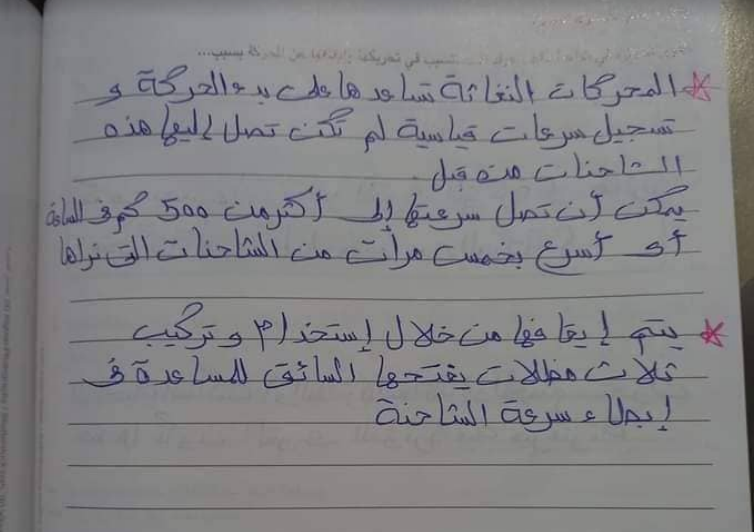 تتسبب في تحريكها وإيقافها عن الحركة بسبب...
* المحركات النفاثة تساعدها على بدء الحركة و
تسجيل سرعات قياسية لم تكن تصل إليها هذه
الشاحنات من قبل.
يمكن أن تصل سرعتها إلى أكثر من 500 كم في الساعة
أي أسرع بخمس مرات من الشاحنات التي نراها
* يتم إيقافها من خلال إستخدام و تركيب
ثلاث مظلات يفتحها السائق للمساعدة في
إبطاء سرعة الشاحنة